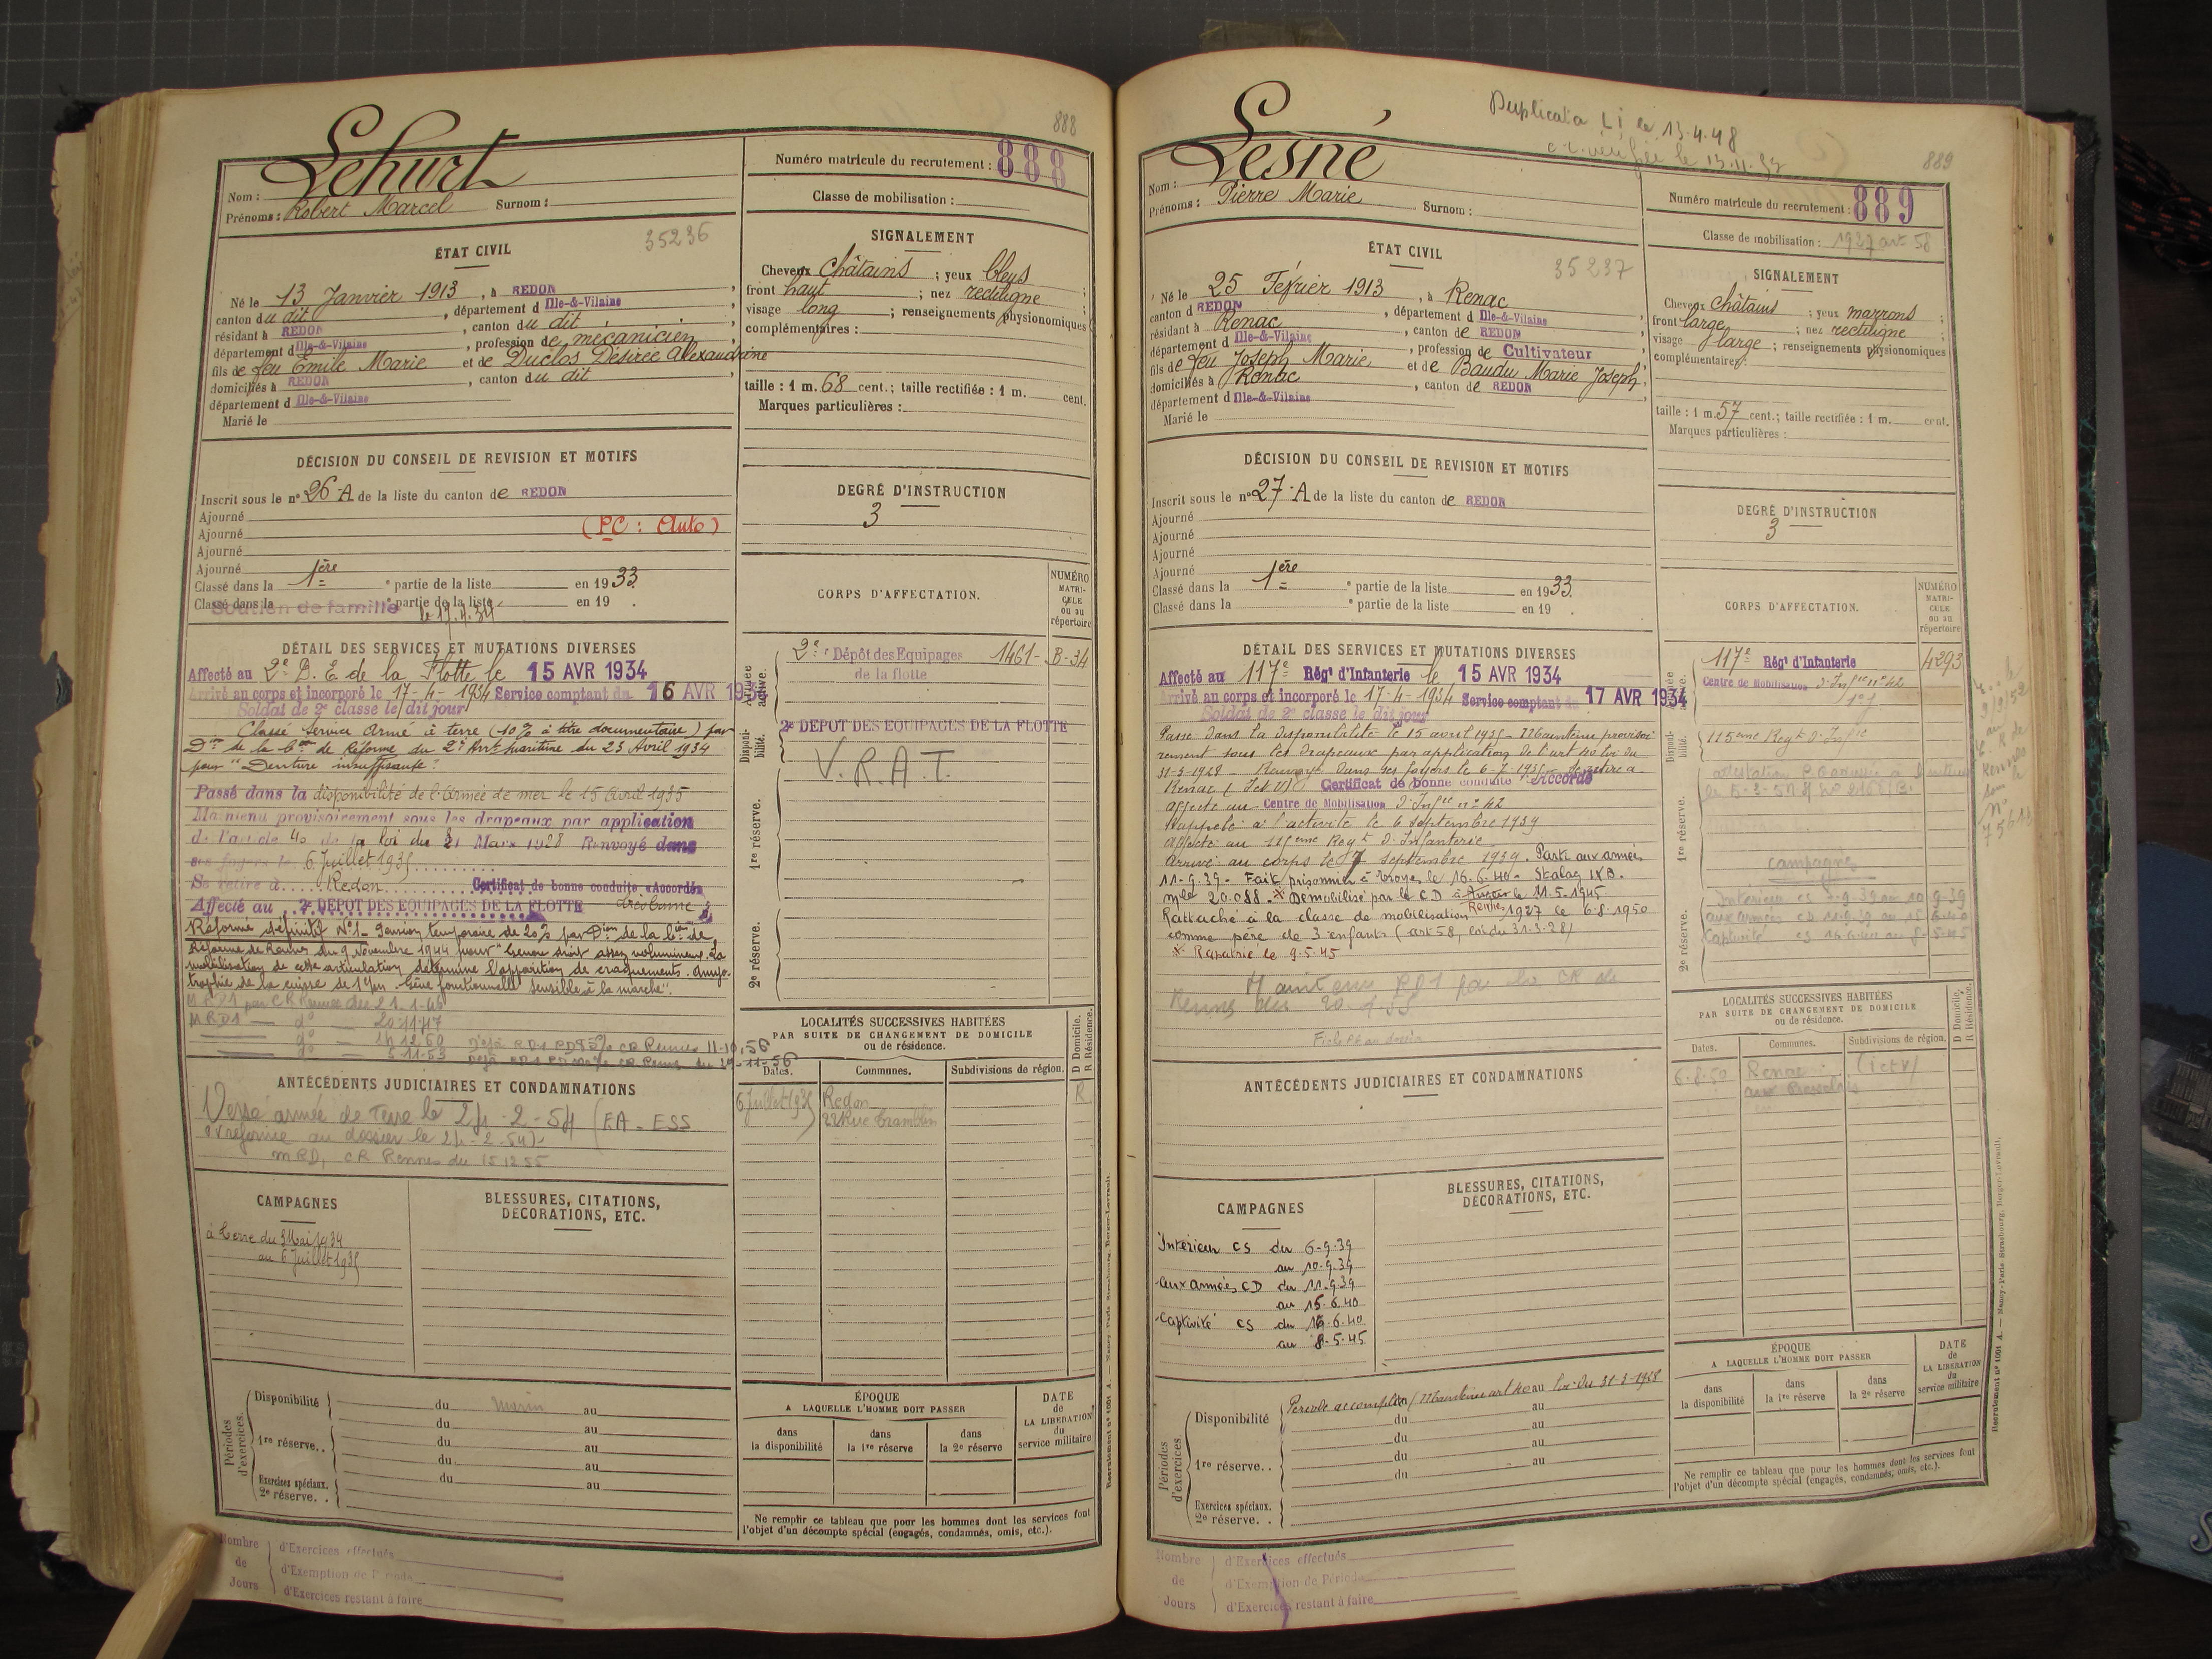 888
Lehurt
Nom :
Prénoms : Robert Marcel Surnom :
Numéro matricule du recrutement : 888
Classe de mobilisation :
ÉTAT CIVIL
35236
Né le 13 Janvier 1913, à REDON,
canton du dit, département d Ille-&-Vilaine,
résidant à REDON, canton du dit,
département d Ille-&-Vilaine, profession de mécanicien,
fils de feu Emile Marie et de Duclos Désirée Alexandrine
domiciliés à REDON, canton du dit,
département d Ille-&-Vilaine
Marié le
SIGNALEMENT
Cheveux Châtains ; yeux bleus ;
front haut ; nez rectiligne ;
visage long ; renseignements physionomiques
complémentaires :
taille : 1 m. 68 cent.; taille rectifiée : 1 m. cent.
Marques particulières :
DÉCISION DU CONSEIL DE REVISION ET MOTIFS
Inscrit sous le n° 26 A de la liste du canton de REDON
Ajourné
Ajourné (PC : Auto)
Ajourné
Ajourné
Classé dans la 1ère partie de la liste en 1933.
Classé dans la partie de la liste en 19 .
Soutien de famille le 17.4.34
DEGRÉ D'INSTRUCTION
3
CORPS D'AFFECTATION.
NUMÉRO MATRICULE ou au répertoire
DÉTAIL DES SERVICES ET MUTATIONS DIVERSES
Affecté au 2e D. E de la Flotte le 15 AVR 1934
Arrivé au corps et incorporé le 17-4-1934 Service comptant du 16 AVR 1934
Soldat de 2e classe le dit jour
Classé Service Armé à terre (10% à titre documentaire) par
Don de la Con de Réforme du 2e Arrt maritime du 23 Avril 1934
pour "Denture insuffisante".
Passé dans la disponibilité de l'Armée de mer le 15 Avril 1935
Maintenu provisoirement sous les drapeaux par application
de l'article 40 de la loi du 31 Mars 1928 Renvoyé dans
ses foyers le 6 Juillet 1935
Se retire à Redon Certificat de bonne conduite «Accordé»
Affecté au 2e DEPOT DES EQUIPAGES DE LA FLOTTE
Réformé définitif N°1 Pension temporaire de 20% par Dion de la Cion de
Réforme de Rennes du 9 Novembre 1944 pour "Genou droit assez volumineux. La
mobilisation de cette articulation détermine l'apparition de craquements. Amyo-
trophie de la cuisse de 1 cm. Gêne fonctionnelle sensible à la marche".
MRD1 par CR Rennes du 21.1.46
MRD1 — do — 20.11.47
Armée active.
2e Dépôt des Equipages de la flotte 1461- B-34
Disponibilité.
2e DEPOT DES EQUIPAGES DE LA FLOTTE
V.R.A.T.
1re réserve.
2e réserve.
LOCALITÉS SUCCESSIVES HABITÉES
PAR SUITE DE CHANGEMENT DE DOMICILE
ou de résidence.
D Domicile. R Résidence.
Dates. Communes. Subdivisions de région.
6 Juillet 1935 Redon R
ANTÉCÉDENTS JUDICIAIRES ET CONDAMNATIONS
Versé armée de Terre le 24-2-54 (EA - ESS
MRD1 CR Rennes du 15 12 55
CAMPAGNES
à terre du 3 Mai 1934
au 6 Juillet 1935
BLESSURES, CITATIONS,
DÉCORATIONS, ETC.
Périodes d'exercices.
Disponibilité du Marin au
du au
1re réserve.. du au
du au
Exercices spéciaux. du au
2e réserve. .
ÉPOQUE
A LAQUELLE L'HOMME DOIT PASSER
dans la disponibilité
dans la 1re réserve
dans la 2e réserve
DATE de LA LIBÉRATION du service militaire
Ne remplir ce tableau que pour les hommes dont les services font
l'objet d'un décompte spécial (engagés, condamnés, omis, etc.).
Nombre de Jours
d'Exercices effectués
d'Exemption de Période
d'Exercices restant à faire
Duplicata L I le 13.4.48
889
Lesné
Nom :
Prénoms : Pierre Marie Surnom :
Numéro matricule du recrutement : 889
Classe de mobilisation : 1927 art 58
ÉTAT CIVIL
35237
Né le 25 Février 1913, à Renac
canton d REDON, département d Ille-&-Vilaine,
résidant à Renac, canton de REDON
département d Ille-&-Vilaine, profession de Cultivateur,
fils de feu Joseph Marie et de Baudu Marie Joseph,
domiciliés à Renac, canton de REDON,
département d Ille-&-Vilaine
Marié le
SIGNALEMENT
Cheveux châtains ; yeux marrons ;
front large ; nez rectiligne ;
visage large ; renseignements physionomiques
complémentaires :
taille : 1 m. 57 cent.; taille rectifiée : 1 m. cent.
Marques particulières :
DÉCISION DU CONSEIL DE REVISION ET MOTIFS
Inscrit sous le n° 27 A de la liste du canton de REDON
Ajourné
Ajourné
Ajourné
Ajourné
Classé dans la 1ère partie de la liste en 1933.
Classé dans la partie de la liste en 19 .
DEGRÉ D'INSTRUCTION
3
CORPS D'AFFECTATION.
NUMÉRO MATRICULE ou au répertoire
DÉTAIL DES SERVICES ET MUTATIONS DIVERSES
Affecté au 117e Régt d'Infanterie le 15 AVR 1934
Arrivé au corps et incorporé le 17-4-1934 Service comptant du 17 AVR 1934
Soldat de 2e classe le dit jour
Passé dans la disponibilité le 15 avril 1935 - Maintenu provisoi
rement sous les drapeaux par application de l'art 40 loi du
31-3-1928 Renvoyé dans ses foyers le 6-7-1935 - Se retire à
Renac (I et V) Certificat de bonne conduite "Accordé"
Affecté au Centre de Mobilisation d'Infie n° 42
Rappelé à l'activité le 6 septembre 1939
Affecté au 115eme Regt d'Infanterie
Arrivé au corps le 7 septembre 1939. Parti aux armées
11-9-39 - Fait prisonnier à Troyes le 16.6.40 - Stalag IX B.
mle 20.088. x Démobilisé par le CD à Angers Rennes le 11.5.1945
Rattaché à la classe de mobilisation 1927 le 6.8.1950
comme père de 3 enfants (art 58, loi du 31-3-28)
x Rapatrié le 9-5-45
Maintenu RD1 par la CR de
Rennes du
Armée active.
117e Régt d'Infanterie 4293
Centre de Mobilisation d'Infie n° 42
Disponibilité.
115eme Regt d'Infie
1re réserve.
campagnes
Intérieur CS 9-39
aux armées CD 11-9-39 au 15 6-40
Captivité CS 16-6-40 au 8-5-45
2e réserve.
LOCALITÉS SUCCESSIVES HABITÉES
PAR SUITE DE CHANGEMENT DE DOMICILE
ou de résidence.
D Domicile. R Résidence.
Dates. Communes. Subdivisions de région.
6-8-50 Renac (I et V)
ANTÉCÉDENTS JUDICIAIRES ET CONDAMNATIONS
CAMPAGNES
Intérieur CS du 6-9-39
au 10.9.39
Aux armées CD du 11.9.39
au 15.6.40
Captivité CS du 16.6.40
au 8.5.45
BLESSURES, CITATIONS,
DÉCORATIONS, ETC.
Périodes d'exercices.
Disponibilité Période accomplie (Maintenu art 40 loi du 31-3-1928
du au
1re réserve.. du au
du au
Exercices spéciaux.
2e réserve. .
ÉPOQUE
A LAQUELLE L'HOMME DOIT PASSER
dans la disponibilité
dans la 1re réserve
dans la 2e réserve
DATE de LA LIBÉRATION du service militaire
Ne remplir ce tableau que pour les hommes dont les services font
l'objet d'un décompte spécial (engagés, condamnés, omis, etc.).
Nombre de Jours
d'Exercices effectués
d'Exemption de Période
d'Exercices restant à faire